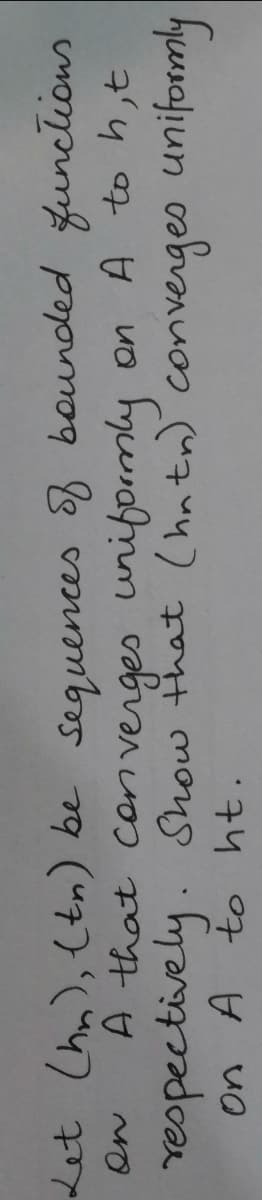 Let (hn), (tn) be sequences of bounded functions
on A that converges uniformly on A to h,t
respectively. Show that (hntn) converges uniformly
on A to ht.